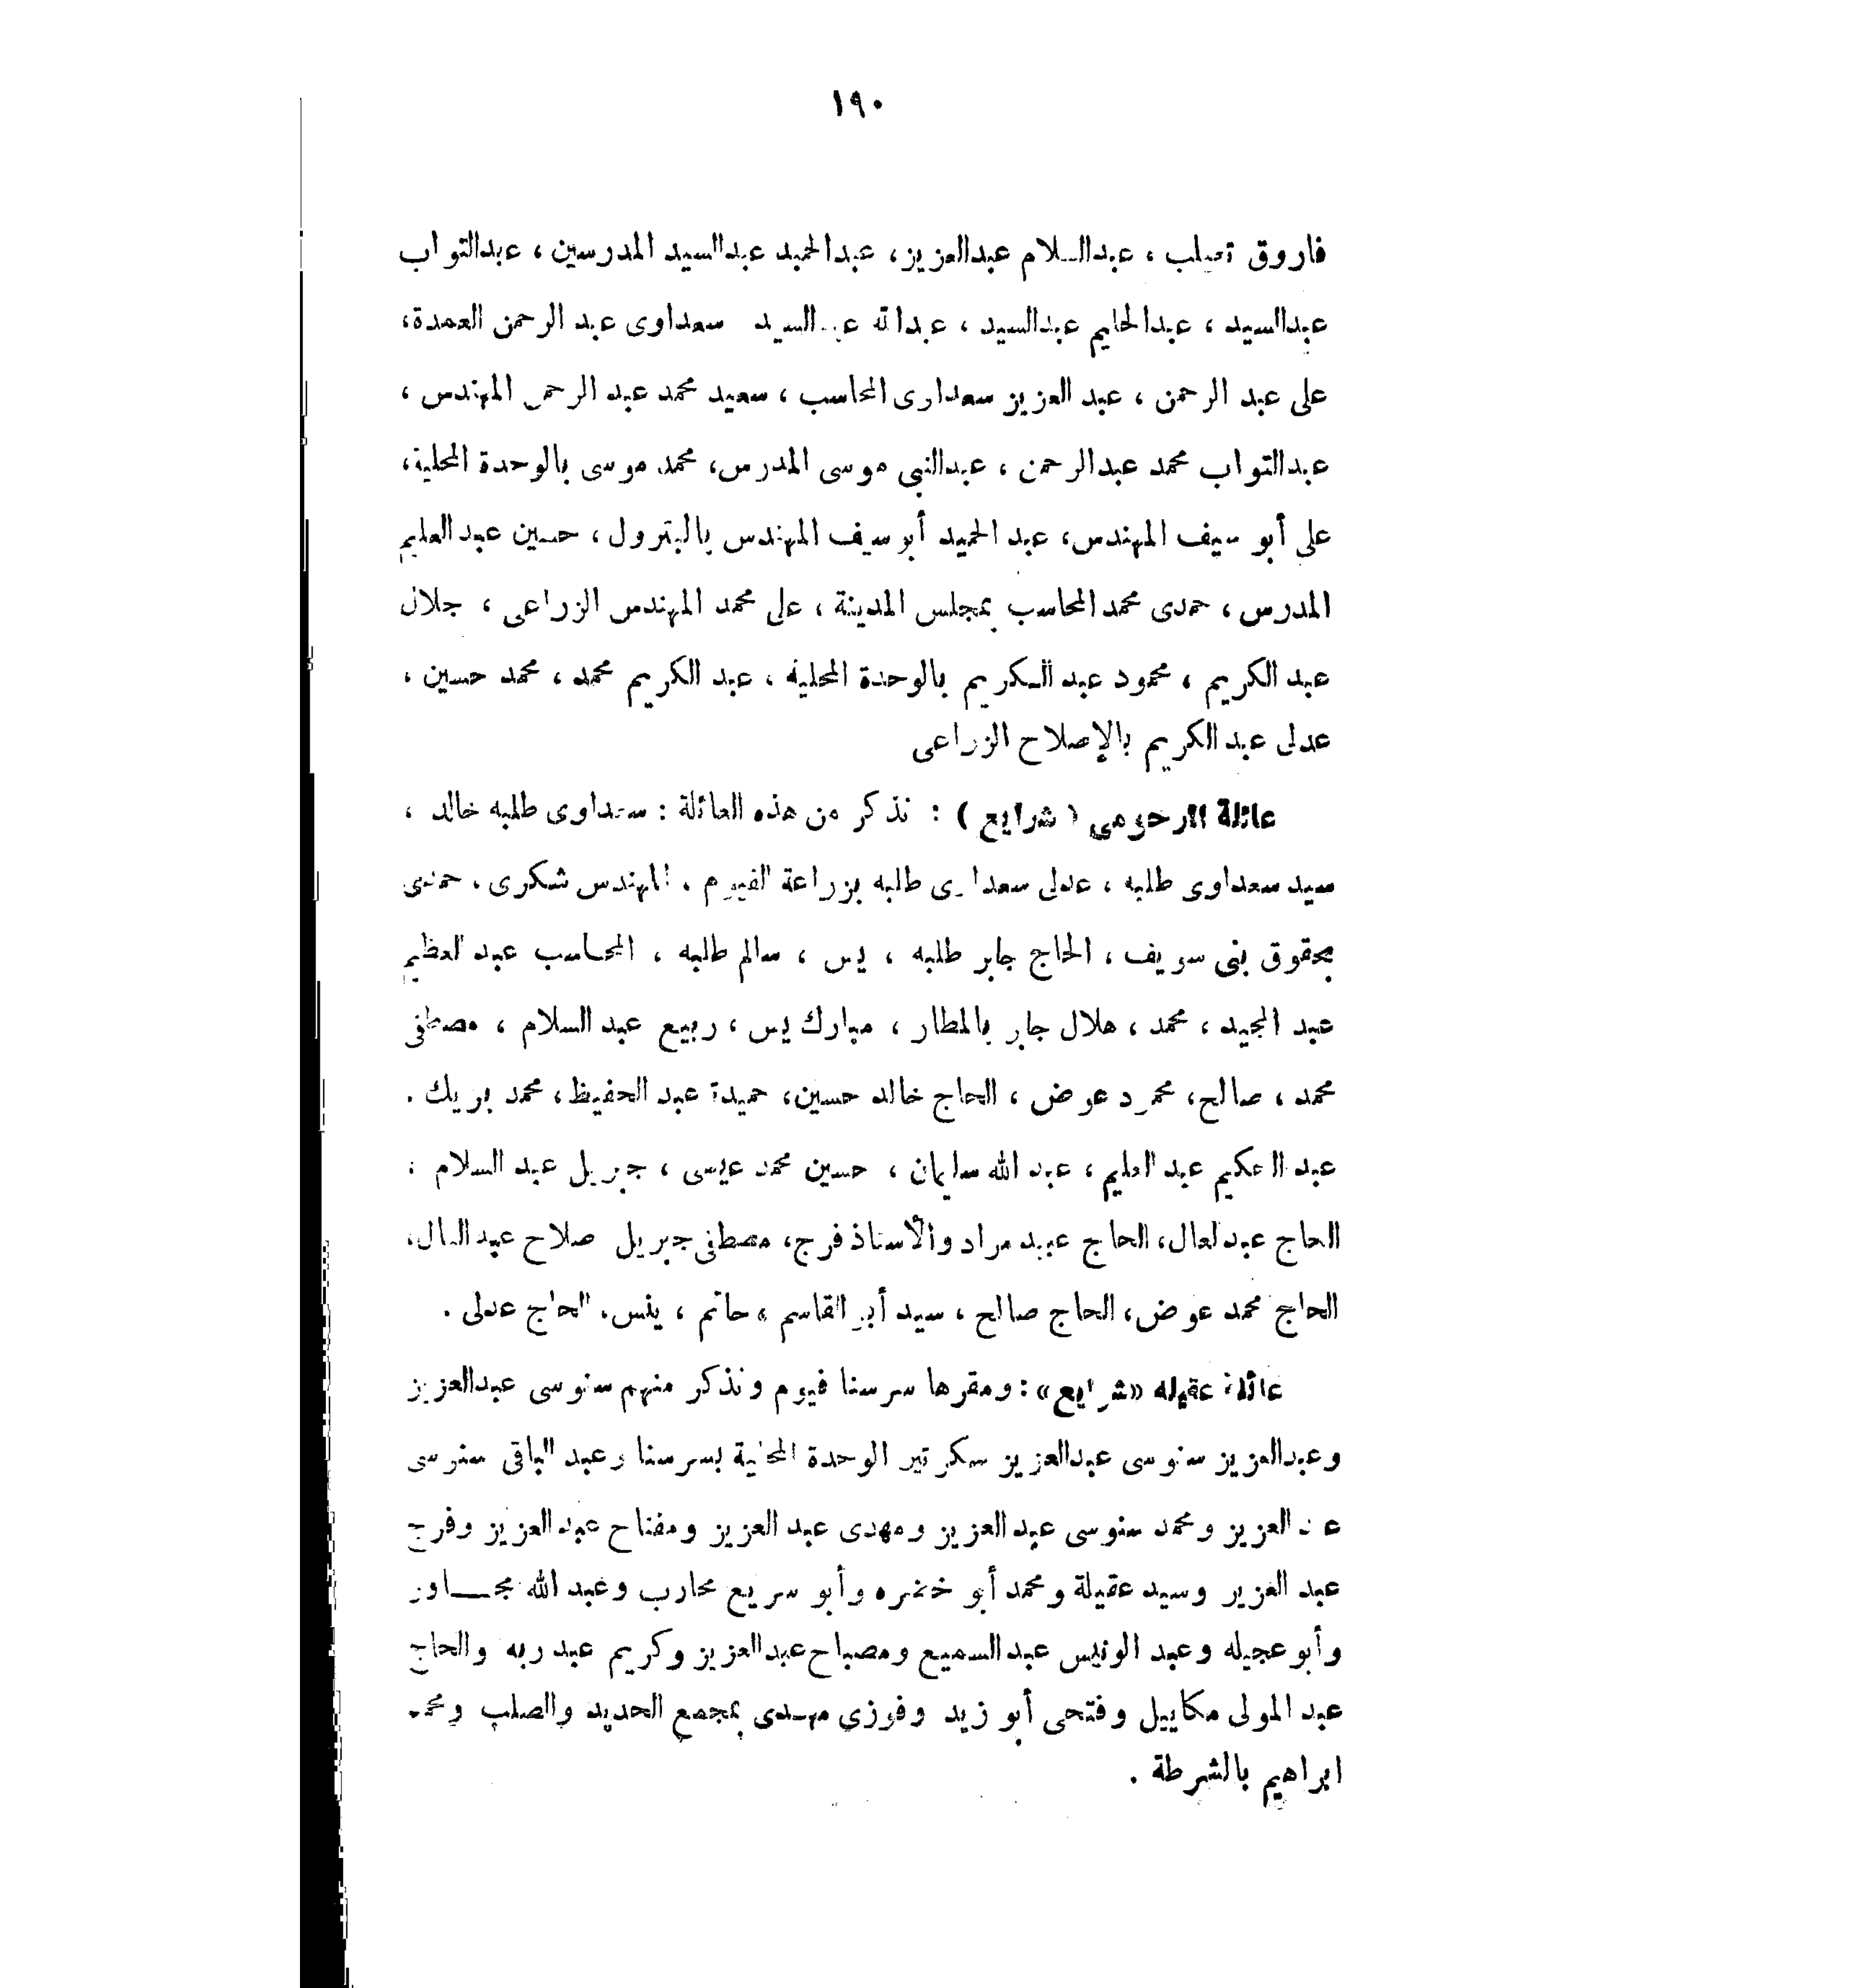 ١٩٠
فاروق تعيلب ، عبدالسلام عبدالعزيز، عبدالحميد عبدالسيد المدرسين ، عبدالتواب
عبدالسيد ، عبدالحليم عبدالسيد ، عبدالله عبدالسيد سعداوى عبد الرحمن العمدة،
على عبد الرحمن ، عبد العزيز سعداوى المحاسب ، سعيد محمد عبد الرحمن المهندس ،
عبدالتواب محمد عبدالرحمن ، عبدالنبى موسى المدرس، محمد موسى بالوحدة المحلية،
على أبو سيف المهندس، عبد الحميد أبو سيف المهندس بالبترول ، حسين عبد العليم
المدرس ، حمدى محمد المحاسب بمجلس المدينة ، على محمد المهندس الزراعى ، جلال
عبد الكريم ، محمود عبد الـكريم بالوحدة المحلية ، عبد الكريم محمد ، محمد حسين ،
عدلى عبد الكريم بالإصلاح الزراعى
عائلة الرحومى ( شرايع ) : نذكر من هذه العائلة : سعداوى طلبه خالد ،
سيد سعداوى طلبه ، عدلى سعداوى طلبه بزراعة الفيوم . المهندس شكرى ، حمدى
بحقوق بنى سويف ، الحاج جابر طلبه ، يس ، سالم طلبه ، المحاسب عبد العظيم
عبد المجيد ، محمد ، هلال جابر بالمطار ، مبارك يس ، ربيع عبد السلام ، مصطفى
محمد ، صالح، محمود عوض ، الحاج خالد حسين، حميدة عبد الحفيظ ، محمد بريك .
عبد الحكيم عبد العليم ، عبد الله سليمان ، حسين محمد عيسى ، جبريل عبد السلام ،
الحاج عبد لعال، الحاج عبيد مراد والأستاذ فرج، مصطفى جبريل صلاح عبد العال،
الحاج محمد عوض، الحاج صالح ، سيد أبو القاسم ، حاتم ، ينس، الحاج عدلى .
عائلة عقيله «شرايع» : ومقرها سرسنا فيوم ونذكر منهم سنوسى عبدالعزيز
وعبدالعزيز سنوسى عبدالعزيز سكرتير الوحدة المحلية بسرسنا وعبد الباقى سنوسى
عبد العزيز ومحمد سنوسى عبدالعزيز ومهدى عبد العزيز ومفتاح عبد العزيز وفرج
عبد العزيز وسيد عقيلة ومحمد أبو خضره وأبو سريع محارب وعبد الله مجـــاور
وأبو عجيله وعبد الونيس عبد السميع ومصباح عبد العزيز وكريم عبد ربه والحاج
عبد المولى مكاييل وفتحى أبو زيد وفوزى مهـدى بمجمع الحديد والصلب ومحمد
ابراهيم بالشرطة .